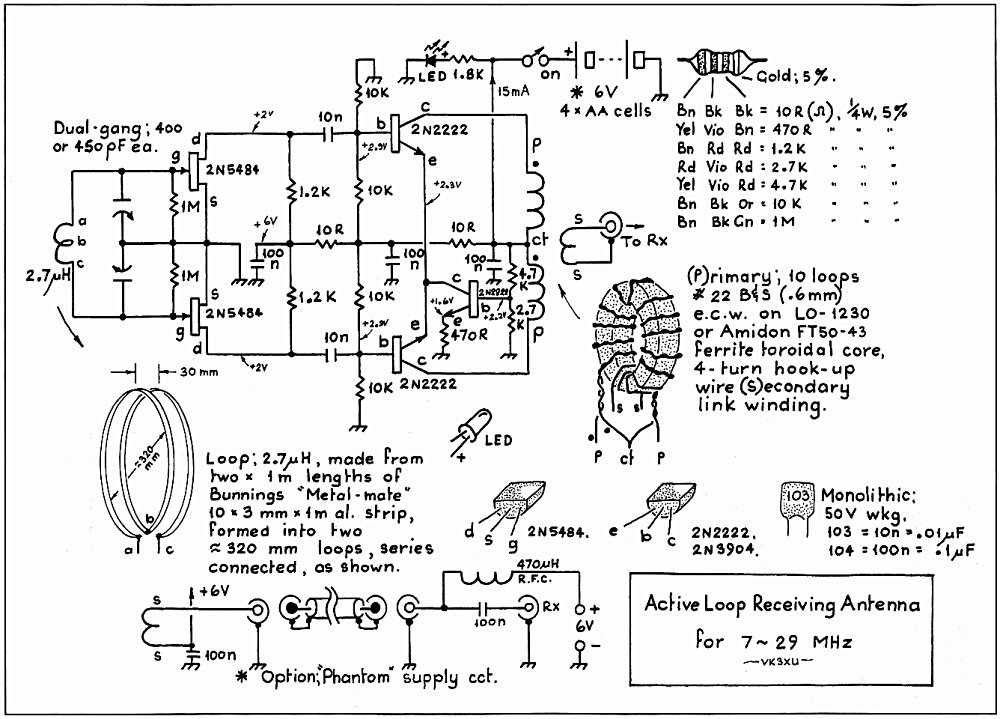 LED
1.8K
on
+
* 6V
4 x AA cells
15mA
Gold; 5%.
Bn Bk Bk = 10R (Ω), 1/4W, 5%
Yel Vio Bn = 470R " " "
Bn Rd Rd = 1.2K " " "
Rd Vio Rd = 2.7K " " "
Yel Vio Rd = 4.7K " " "
Bn Bk Or = 10K " " "
Bn Bk Gn = 1M " " "
Dual-gang; 400
or 450pF ea.
d
g
2N5484
s
+2V
10n
10K
b
c
2N2222
e
+2.9V
+2.3V
1M
1.2K
10K
a
b
c
2.7µH
+6V
100
n
10R
100
n
10R
100
n
P
ct
P
4.7
K
2.7
K
s
s
To Rx
1M
s
g
2N5484
d
1.2K
10K
+2V
10n
+2.9V
b
e
c
2N2222
10K
c
2N2222
b
+2.2V
+1.6V
e
470R
(P)rimary; 10 loops
# 22 B&S (.6mm)
e.c.w. on LO-1230
or Amidon FT50-43
ferrite toroidal core,
4-turn hook-up
wire (s)econdary
link winding.
s s
P ct P
30 mm
≈320
mm
b
a c
Loop; 2.7µH, made from
two x 1m lengths of
Bunnings "Metal-mate"
10 x 3 mm x 1m al. strip,
formed into two
≈ 320 mm loops, series
connected, as shown.
LED
+
d s g
2N5484.
e b c
2N2222,
2N3904.
103
Monolithic;
50V wkg.
103 = 10n = .01µF
104 = 100n = .1µF
s
s
+6V
100n
470µH
R.F.C.
100n
Rx
+
6V
-
* Option; "Phantom" supply cct.
Active Loop Receiving Antenna
for 7~29 MHz
— VK3XU —